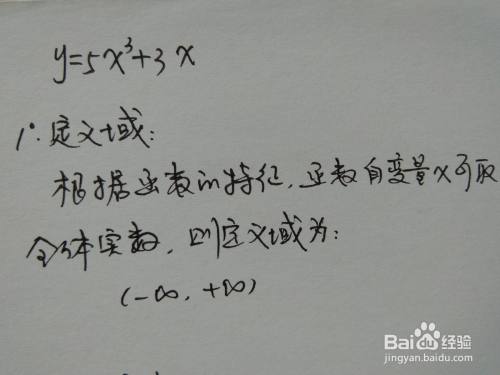 y=5x³+3x
1°.定义域:
根据函数的特征,函数自变量x可取
全体实数,则定义域为:
(-∞,+∞)
Baidu经验
jingyan.baidu.com